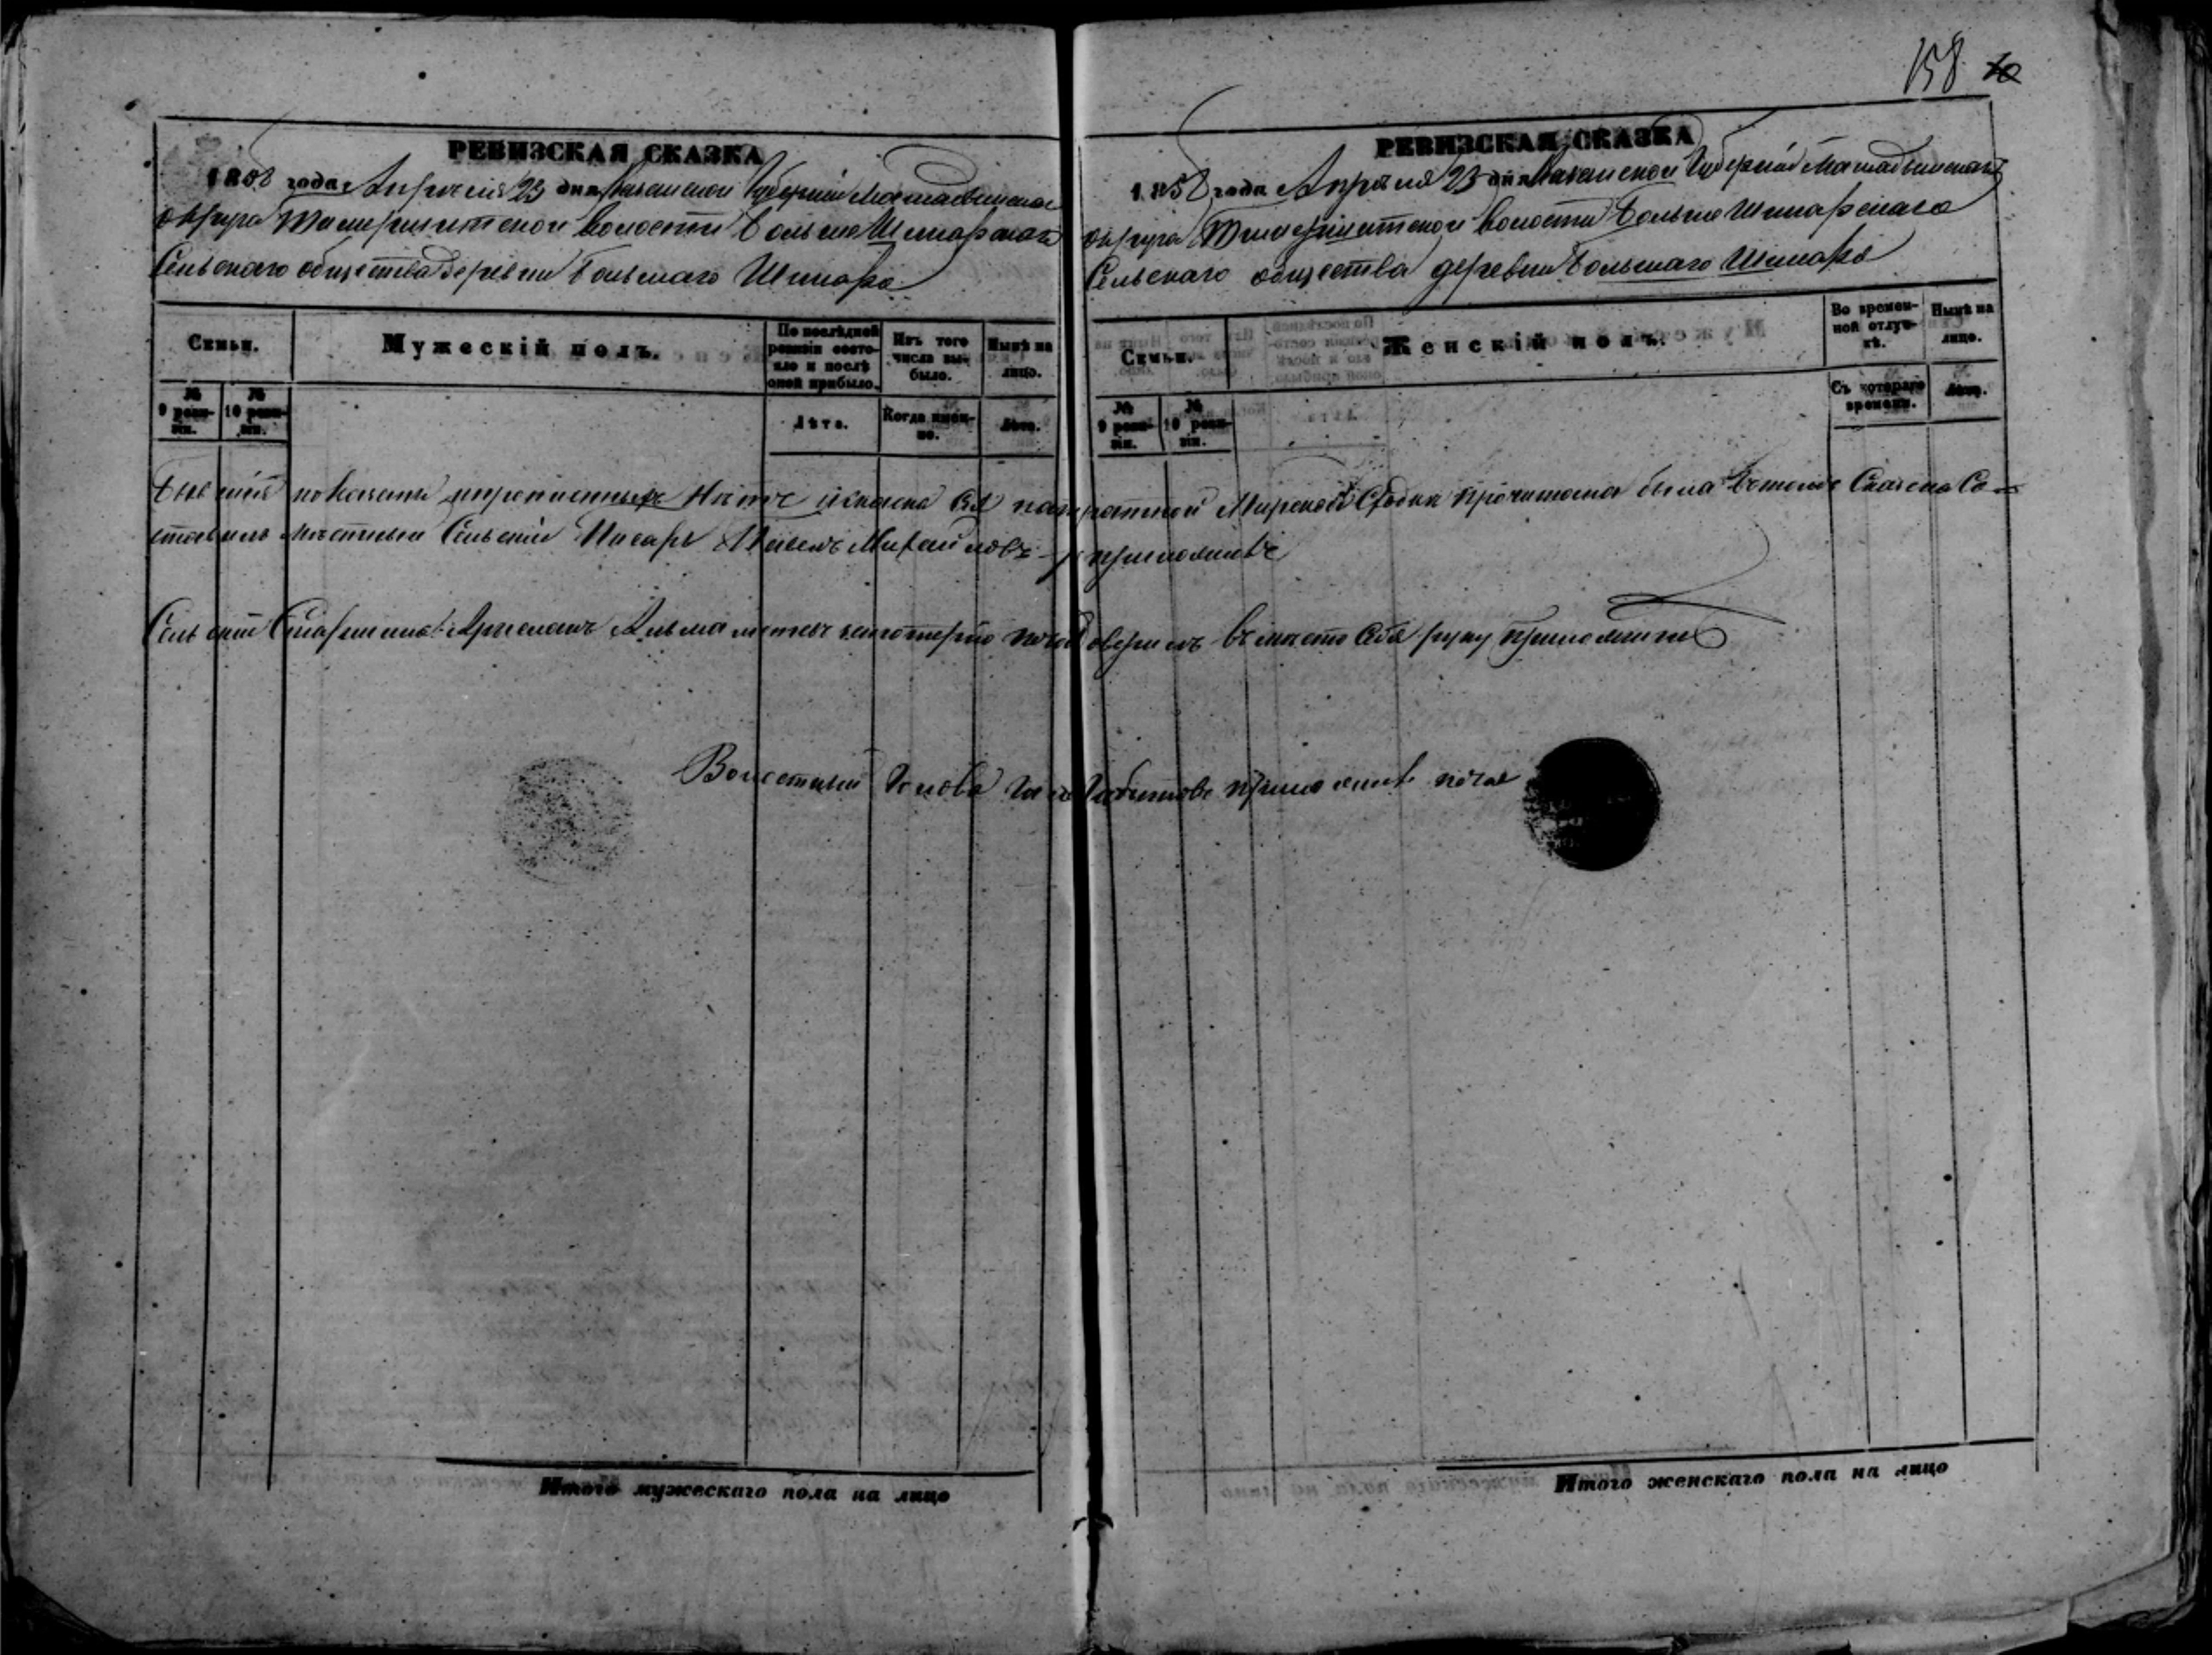 158
РЕВИЗСКАЯ СКАЗКА
1858 года Апреля 23 дня Казанской Губернии Мамадышскаго
округа волости Больше Шинарскаго
Сельскаго общества деревни Большаго Шинара
Семьи.
Мужескій полъ.
По послѣдней ревизіи состояло и послѣ оной прибыло.
Изъ того числа выбыло.
Нынѣ на лицо.
№ 9 ревизіи.
№ 10 ревизіи.
Лѣта.
Когда именно.
Лѣта.
РЕВИЗСКАЯ СКАЗКА
1858 года Апреля 23 дня Казанской Губерніи Мамадышскаго
округа волости Больше Шинарскаго
Сельскаго общества деревни Большаго Шинара
Семьи.
Женскій полъ.
Во временной отлучкѣ.
Нынѣ на лицо.
№ 9 ревизіи.
№ 10 ревизіи.
Съ котораго времени.
Лѣта.
показаны прописныхъ Нѣтъ и сказка сія на Мирской Сходки прочитана была Сказка Со-
ставилъ местный Сельскій Писарь Михайловъ приложилъ
Сельскій Старшина вместо себя руку приложилъ
Волостный Голова приложилъ печать
Итого мужескаго пола на лицо
Итого женскаго пола на лицо